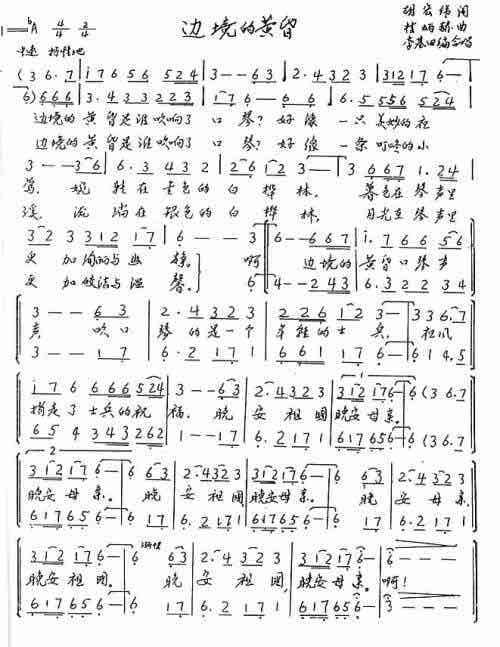 边境的黄昏
1=♭A 4/4 2/4
胡宏伟词
桂炳赫曲
李基田编合唱
中速 抒情地
(3 6·7 | i 7 6 5 6 5 2 4 | 3 - - 6 3 | 2·4 3 2 3 | 3 1 2 1 7 6
6) 6 6 6 | 3·4 3 3 2 2 3 | i 7 6 - 6 6 | 6·5 5 5 6 5 2 4
边境的黄昏是谁吹响了口琴?好像一只美妙的夜
边境的黄昏是谁吹响了口琴?好像一条叮咚的小
3 - - 3 6 | 6·3 4 3 2 | 2 6 i 2 3 - | 3 6 6 7 1·2 4
莺,婉转在青色的白桦林,暮色在琴声里
溪,流淌在银色的白桦林,月光在琴声里
3 2 3 3 1 2 1 7 | 6 - - 3 | 6 - - 6 6 7 | i·7 6 6 5 6
更加简约与幽静。啊 边境的黄昏口琴声
更加皎洁与温馨。
6 | 4 - - 2 4 3 | 6·3 2 2 3 4
3 - - 6 3 | 2·4 3 2 3 | 2 2 6 1 2 3 - | 3 3 6·7
声 吹口琴的是一个年轻的士兵,在风
3 - - 1 7 | 6·2 1 7 1 | 6 6 1 1 7 6 - | 6 1 4·5
i 7 6 6 6 6 5 5 2 4 | 3 - - 6 3 | 2·4 3 2 3 | 3 1 2 1 7 6 - | 6 (3 6·7
捎走了士兵的祝福,晚安祖国晚安母亲。
6 5 4 3 4 3 2 6 2 | 1 - - 1 7 | 6·2 1 7 1 | 6 1 7 6 5 6 - | 6 (3 6·7
3 1 2 1 7 6 - | 6 6 3 | 2·4 3 2 3 | 3 1 2 1 7 6 - | 6 6 3 | 2·4 3 2 3
晚安母亲。晚安祖国,晚安母亲。晚安母亲,
6 1 7 6 5 6 - | 6 1 7 | 6·2 1 7 1 | 6 1 7 6 5 6 - | 6 1 7 | 6·2 1 7 1
渐慢
3 1 2 1 7 6 - | 6 6 3 | 2·4 3 2 3 | 3 1 2 1 7 6 | 6 - - -
晚安祖国,晚安祖国,晚安母亲。啊!
6 1 7 6 5 6 - | 6 1 7 | 6·2 1 7 1 | 6 1 7 6 5 6 - | 3 - - -